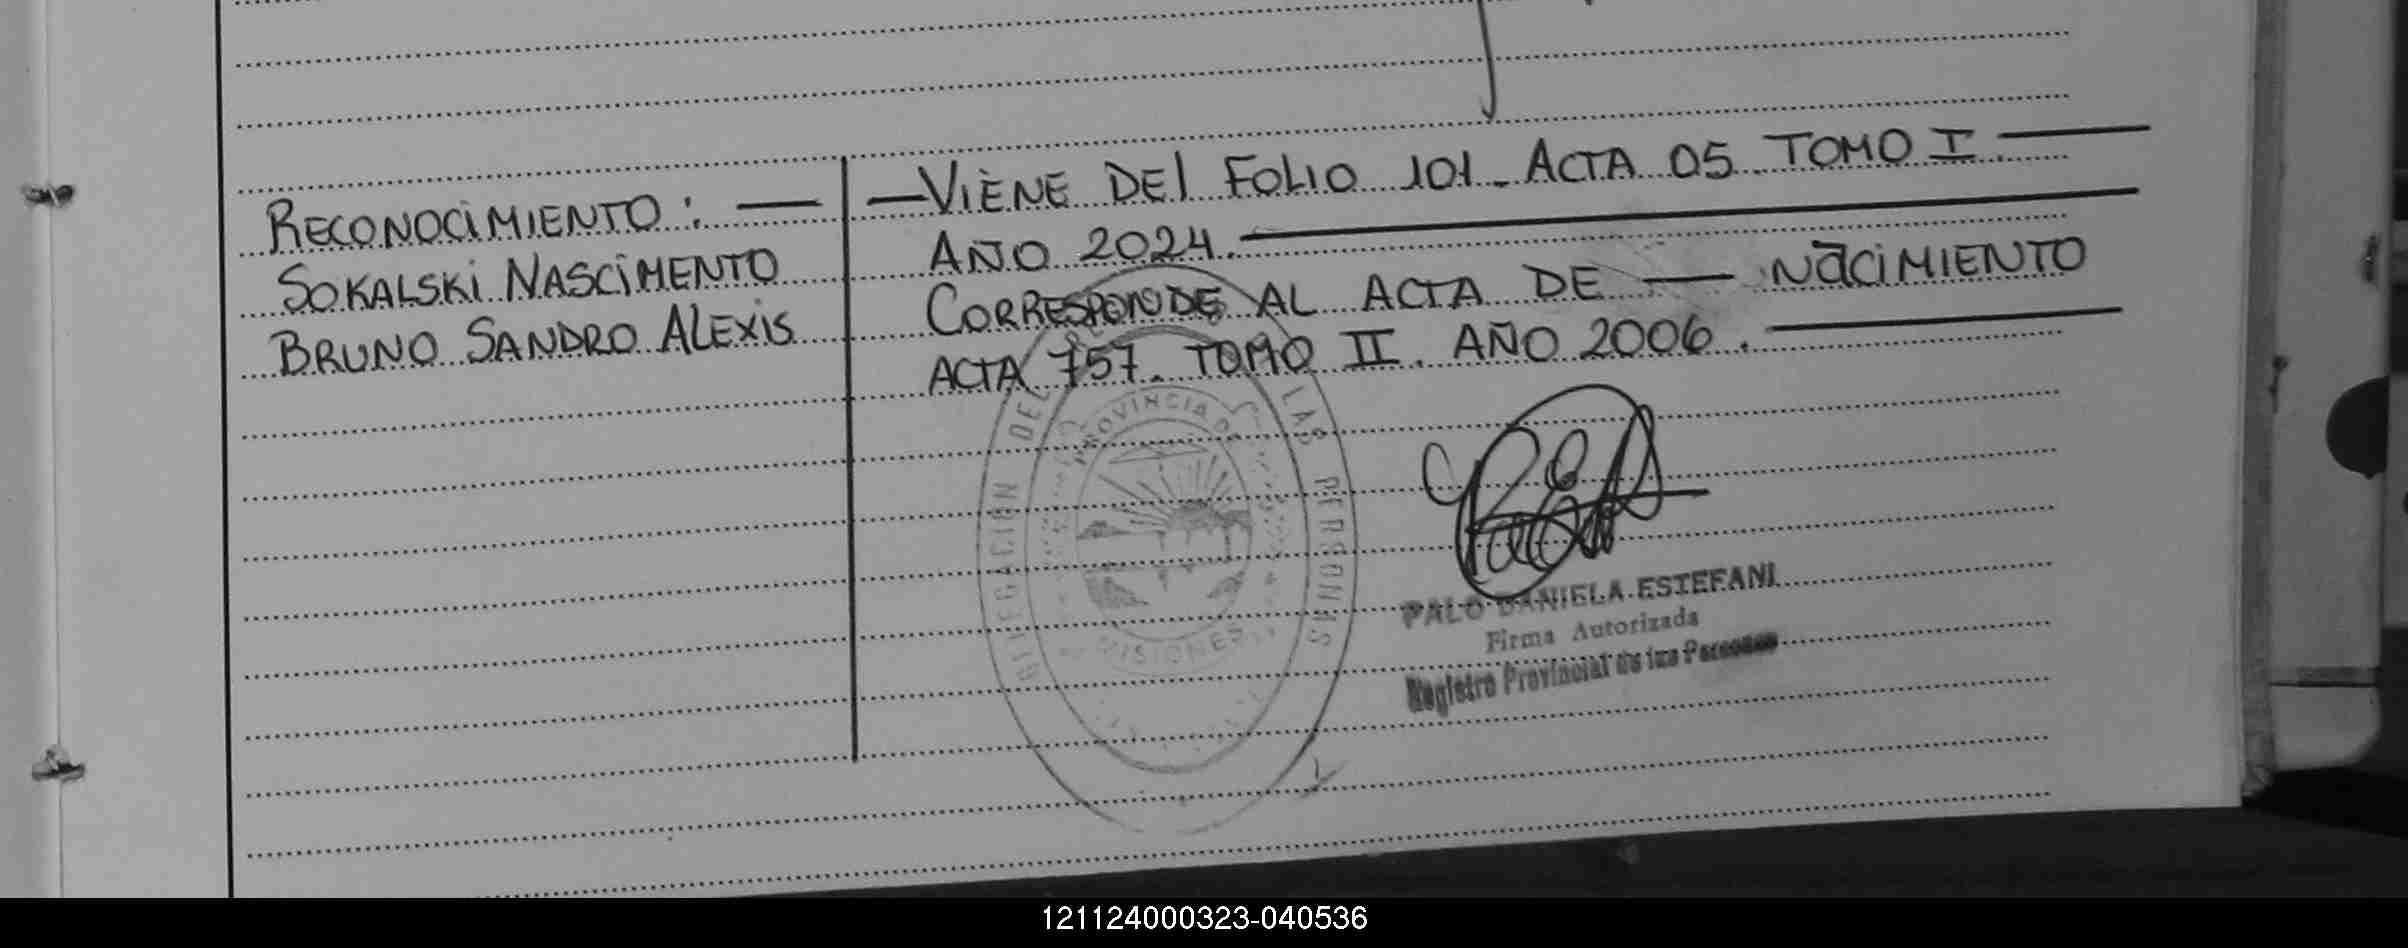 RECONOCIMIENTO: —
SOKALSKI NASCIMENTO
BRUNO SANDRO ALEXIS
— VIENE DEL FOLIO 101. ACTA 05. TOMO I —
AÑO 2024. —
CORRESPONDE AL ACTA DE — NACIMIENTO
ACTA 757. TOMO II. AÑO 2006. —
DEL LAS PERSONAS
PROVINCIA DE
MISIONES
PALO DANIELA ESTEFANI
Firma Autorizada
Registro Provincial de las Personas
121124000323-040536